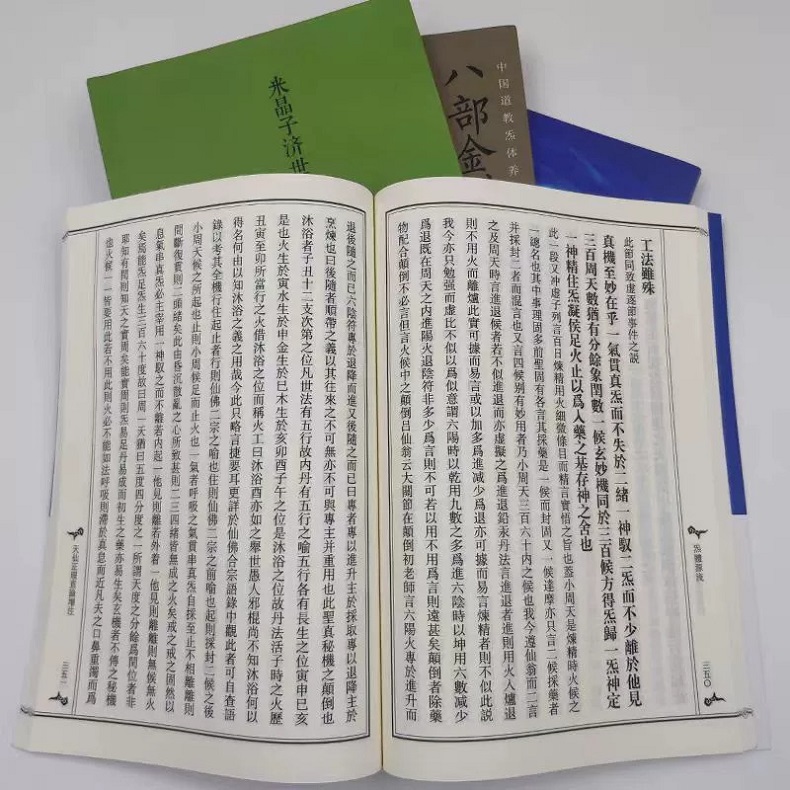 米晶子济世
八部金
中国道教炁体养
工法雖殊
此節同致虛逐節事件之說
真機至妙在乎一氣貫真炁而不失於二緒一神馭二炁而不少離於他見
三百周天數猶有分餘象閏數一候玄妙機同於三百候方得炁歸一炁神定
一神精住炁凝候足火止以爲入藥之基存神之舍也
此一段又沖虛子列言百日煉精用火細微條目而精言實悟之旨也蓋小周天是煉精時火候之
一總名也其中事理固多前聖固有各言其採藥是一候而封固又一候達摩亦只言二候採藥者
并採封二者而混言也又言四候別有妙用者乃小周天三百六十內之候也我今遵仙翁而二言
之及周天時言進退候者若不似進退而亦虛擬之爲進退鉛永丹法言進退者進則用火入爐退
則不用火而離爐此實可據而易言或以加多爲進減少爲退亦可據而易言煉精者則不似此說
我今亦只勉强而虛比不似以爲似意謂六陽時以乾用九數之多爲進六陰時以坤用六數減少
爲退既在周天之內進陽火退陰符非多少爲言則不可若以用不用爲言則遠甚矣顛倒者除藥
物配合顛倒不必言但言火候中之顛倒呂仙翁云大關節在顛倒初老師言六陽火專於進升而
炁體源流
三五〇
退後隨之而已六陰符專於退降而進又後隨之而已曰專者專以進升主於採取專以退降主於
烹煉也曰後隨者順帶之義以其往來之不可無亦不可與專主并重用也此聖真秘機之顛倒也
沐浴者子丑十二支次第之位凡世法有五行故內丹有五行之喻五行各有長生之位寅申巳亥
是也火生於寅水生於申金生於巳木生於亥卯酉子午之位是沐浴之位故丹法活子時之火歷
丑寅至卯所當行之火借沐浴之位而稱火工曰沐浴酉亦如之舉世愚人邪棍尚不知沐浴何以
得名何由以知沐浴之義之用哉今此只略言捷要耳更詳於仙佛合宗語錄中觀此者可自查語
錄以考其全機行住起止者行則仙佛二宗之喻也住則仙佛二宗之前喻也起則採封二候之後
小周天候之所起也止則小周候足而止火也一氣者呼吸之氣貫串真炁自採至止不相離離則
間斷復貫則二頭緒矣此由昏沉散亂之心所致甚則二三四緒皆無成之火矣戒之戒之固然以
息氣串真炁必主宰用一神馭之而不離若內起一他見則離若外著一他見則離離則無候無火
矣焉能炁足炁生三百六十度故曰周一天猶曰五度四分度之一所謂天度之分餘爲閏位者非
耶知有閏則知天之實周矣能實周則炁易足丹易成而初生之藥亦易生矣玄機者不傳之秘機
也火候一一皆要用此若不用此則火必不能如法呼吸則滯於真息而近凡夫之口鼻重濁而爲
天仙正理直論增注
三五一